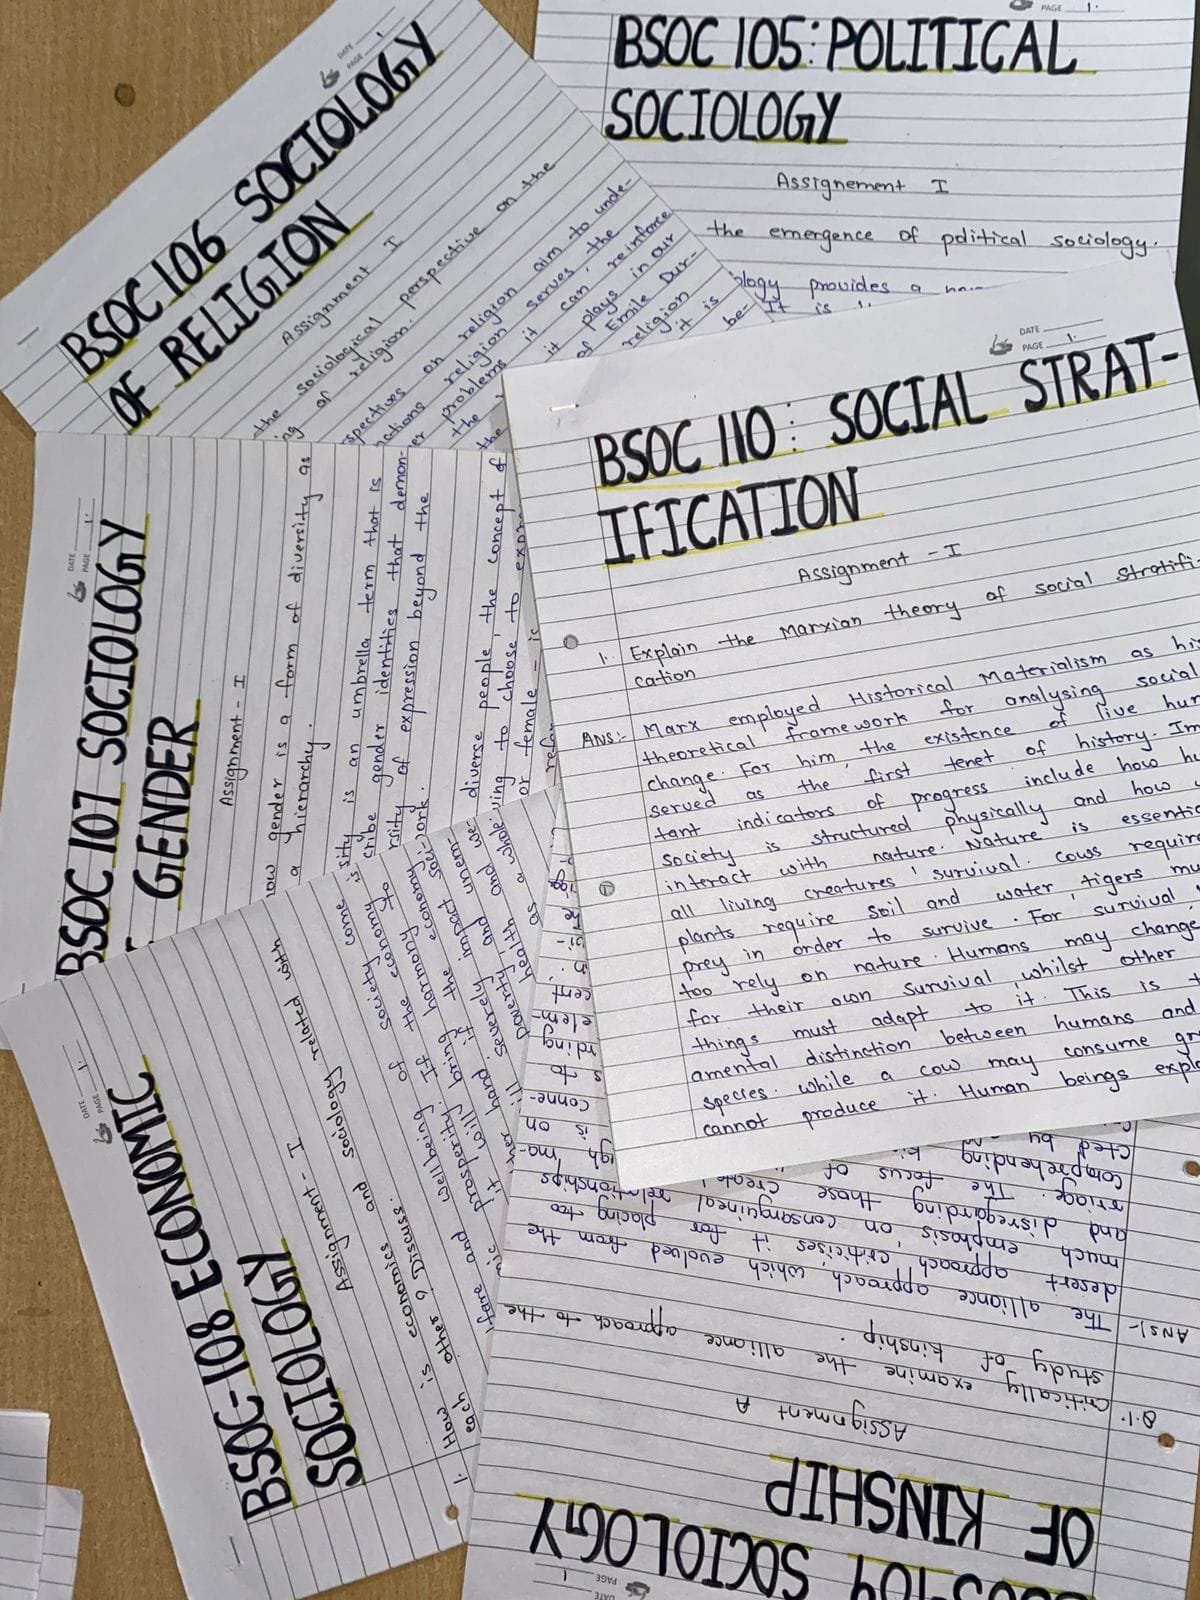 PAGE 1.
BSOC 105: POLITICAL
SOCIOLOGY
Assignement I
the emergence of political sociology.
ology provides a
It is
DATE
PAGE 1.
BSOC 106 SOCIOLOGY
OF RELIGION
Assignment I
the sociological perspective on the
ing of religion.
spectives on religion aim to unde-
nations religion serves the
er problems it can reinforce
the it plays in our
the of Emile Dur-
religion
it is
be-
DATE
PAGE 1.
BSOC 110: SOCIAL STRAT-
IFICATION
Assignment - I
1. Explain the Marxian theory of social stratifi-
cation
ANS:- Marx employed Historical Materialism as his
theoretical framework for analysing social
change. For him, the existence of live hum
served as the first tenet of history. Im
tant indicators of progress include how hu
society is structured physically and how
interact with nature. Nature is essentia
all living creatures' survival. Cows require
plants require soil and water, tigers mu
prey in order to survive. For survival,
too rely on nature. Humans may change
for their own survival, whilst other
things must adapt to it. This is t
amental distinction between humans and
species. While a cow may consume gra
cannot produce it. Human beings explo
DATE
PAGE 1.
BSOC 107 SOCIOLOGY
GENDER
Assignment - I
how gender is a form of diversity as
a hierarchy.
sity is an umbrella term that is
cribe gender identities that demon-
rsity of expression beyond the
work.
diverse people, the concept of
ving to choose to expre
or female - is
DATE
PAGE 1.
BSOC-108 ECONOMIC
SOCIOLOGY
Assignment - I
1. How is economics and sociology related with
each other? Discuss.
wellbeing of society come
fare and prosperity. If the economy is
it will bring harmony to
her hand if the economy
ill severely impact soc-
poverty, and unem-
health and we-
as a whole.
DATE
PAGE 1
SOCIOLOGY
OF KINSHIP
Assignment A
Q.1. Critically examine the alliance approach to the
study of kinship.
ANS:- The alliance approach, which evolved from the
desert approach, criticises it for placing too
much emphasis on consanguineal relationships
and disregarding those
riage. The focus of
comprehending
cted by
igh ma-
is on
conne-
s to
rding
elem-
cent